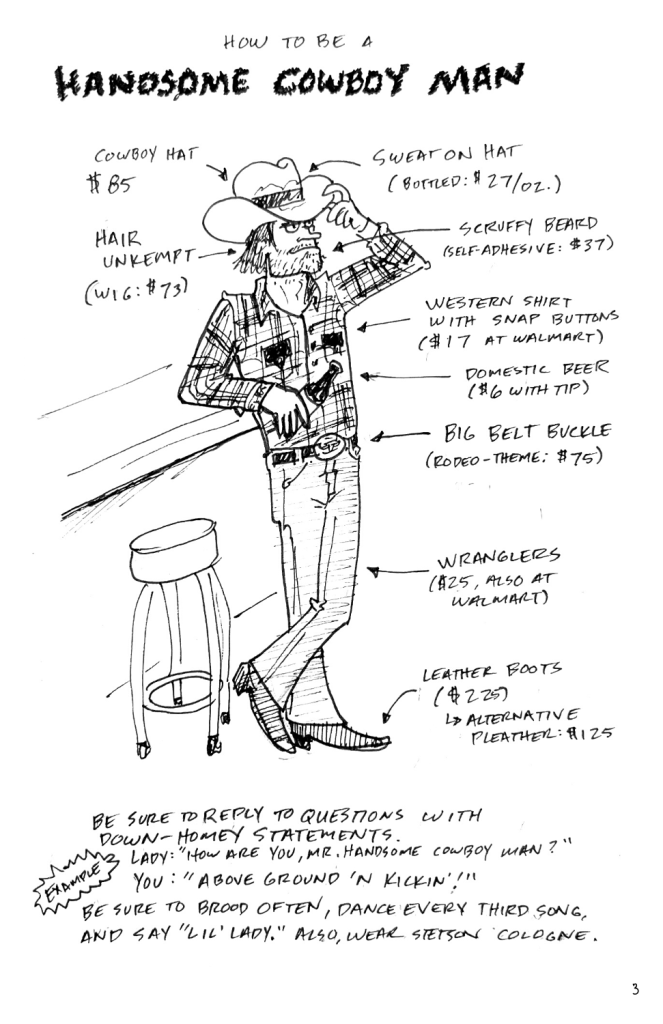 HOW TO BE A
HANDSOME COWBOY MAN
COWBOY HAT
$85
SWEAT ON HAT
(BOTTLED: $27/OZ.)
HAIR
UNKEMPT
(WIG: $73)
SCRUFFY BEARD
(SELF-ADHESIVE: $37)
WESTERN SHIRT
WITH SNAP BUTTONS
($17 AT WALMART)
DOMESTIC BEER
($6 WITH TIP)
BIG BELT BUCKLE
(RODEO-THEME: $75)
WRANGLERS
($25, ALSO AT
WALMART)
LEATHER BOOTS
($225)
↳ ALTERNATIVE
PLEATHER: $125
BE SURE TO REPLY TO QUESTIONS WITH
DOWN-HOMEY STATEMENTS.
EXAMPLE
LADY: "HOW ARE YOU, MR. HANDSOME COWBOY MAN?"
YOU: "ABOVE GROUND 'N KICKIN'!"
BE SURE TO BROOD OFTEN, DANCE EVERY THIRD SONG,
AND SAY "LIL' LADY." ALSO, WEAR STETSON COLOGNE.
3